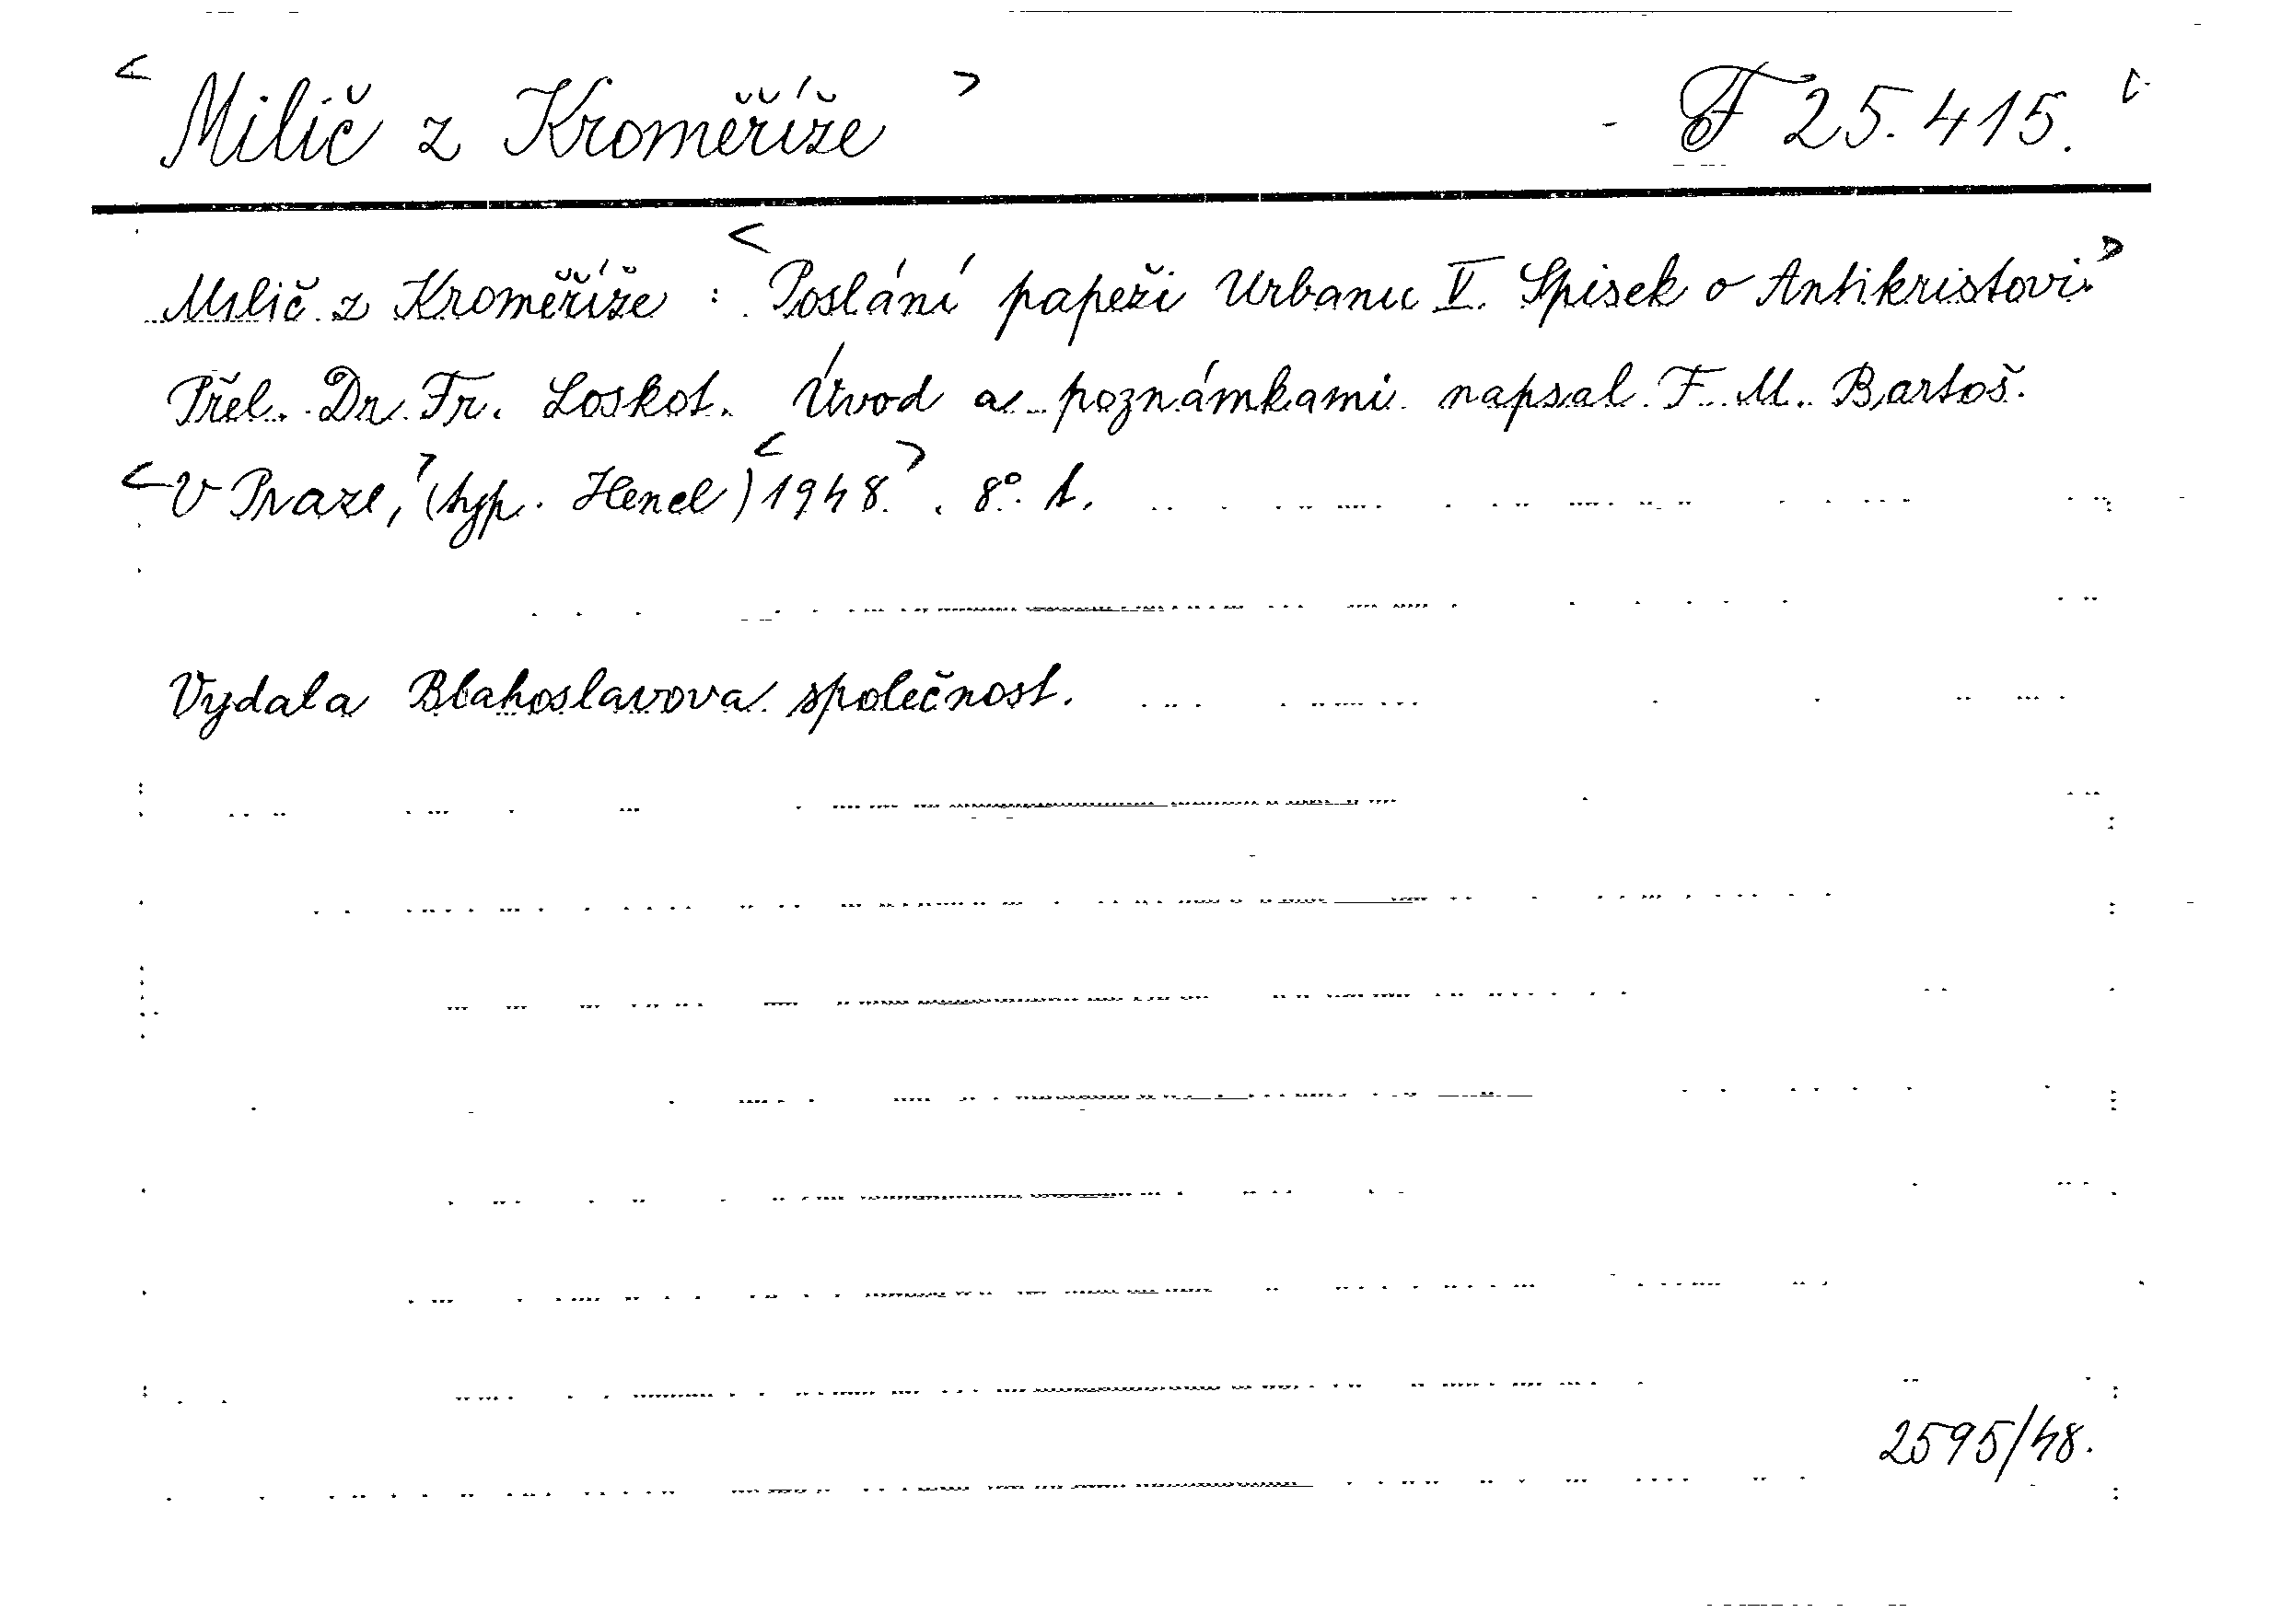 <Milič z Kroměříže> F 25.415.
Milič z Kroměříže: <Poslání papeži Urbanu V. Spisek o Antikristovi.>
Přel. Dr. Fr. Loskot. Úvod a poznámkami napsal F. M. Bartoš.
<V Praze,> (typ. Henel) <1948.>. 8°. 1.
Vydala Blahoslavova společnost.
2595/48.